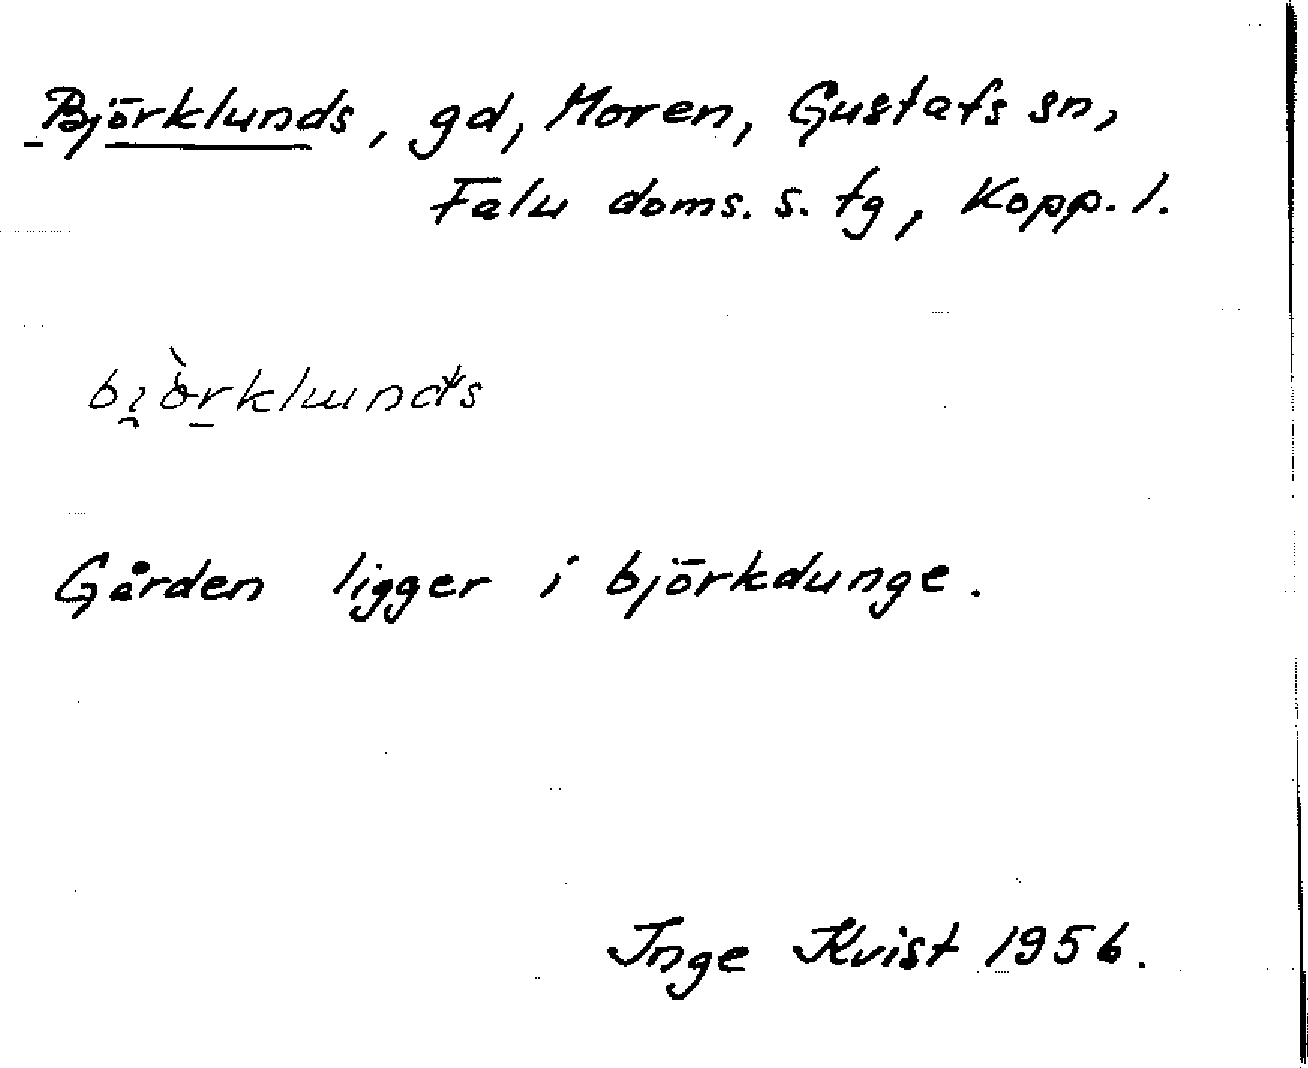 Björklunds, gd, Moren, Gustafs sn,
Falu doms. s. tg, Kopp. l.
Gården ligger i björkdunge.
Inge Kvist 1956.